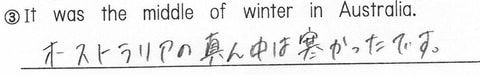 ③It was the middle of winter in Australia.
オーストラリアの真ん中は寒かったです。